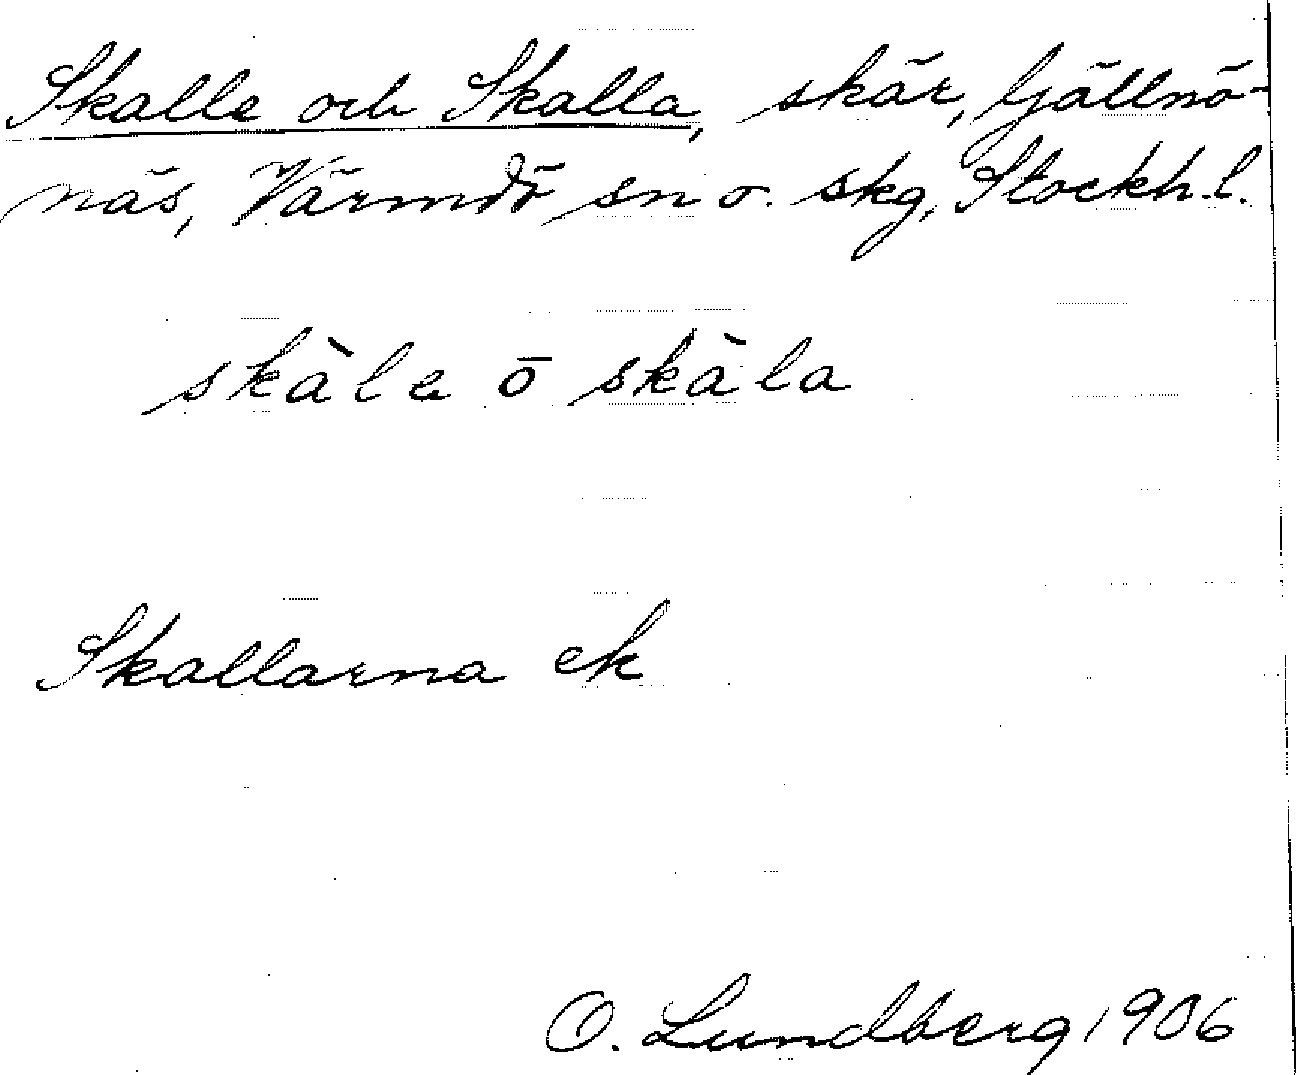 Skalle och Skalla, skär, Tjällnö-
näs, Värmdö sn o. skg, Stockh. l.
skàle ō skàla
Skallarna ek
O. Lundberg 1906